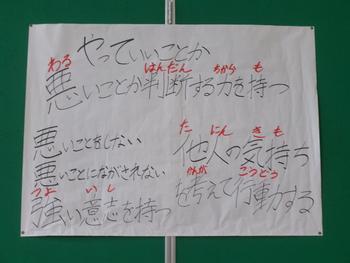 やっていいことか
わる はんだん ちから も
悪いことか判断する力を持つ
悪いことをしない
悪いことにながされない
つよ いし
強い意志を持つ
た にん き も
他人の気持ち
かんが こうどう
を考えて行動する